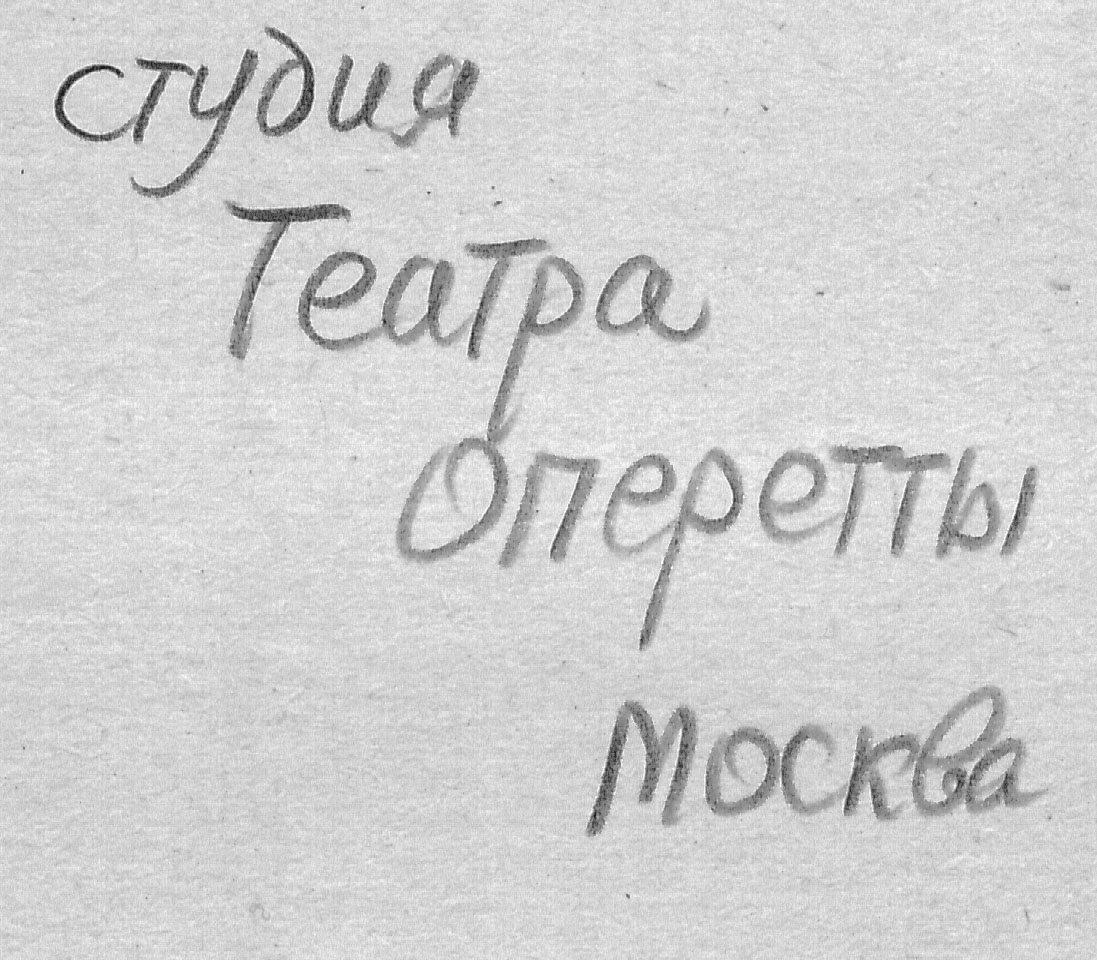 студия
Театра
Оперетты
Москва